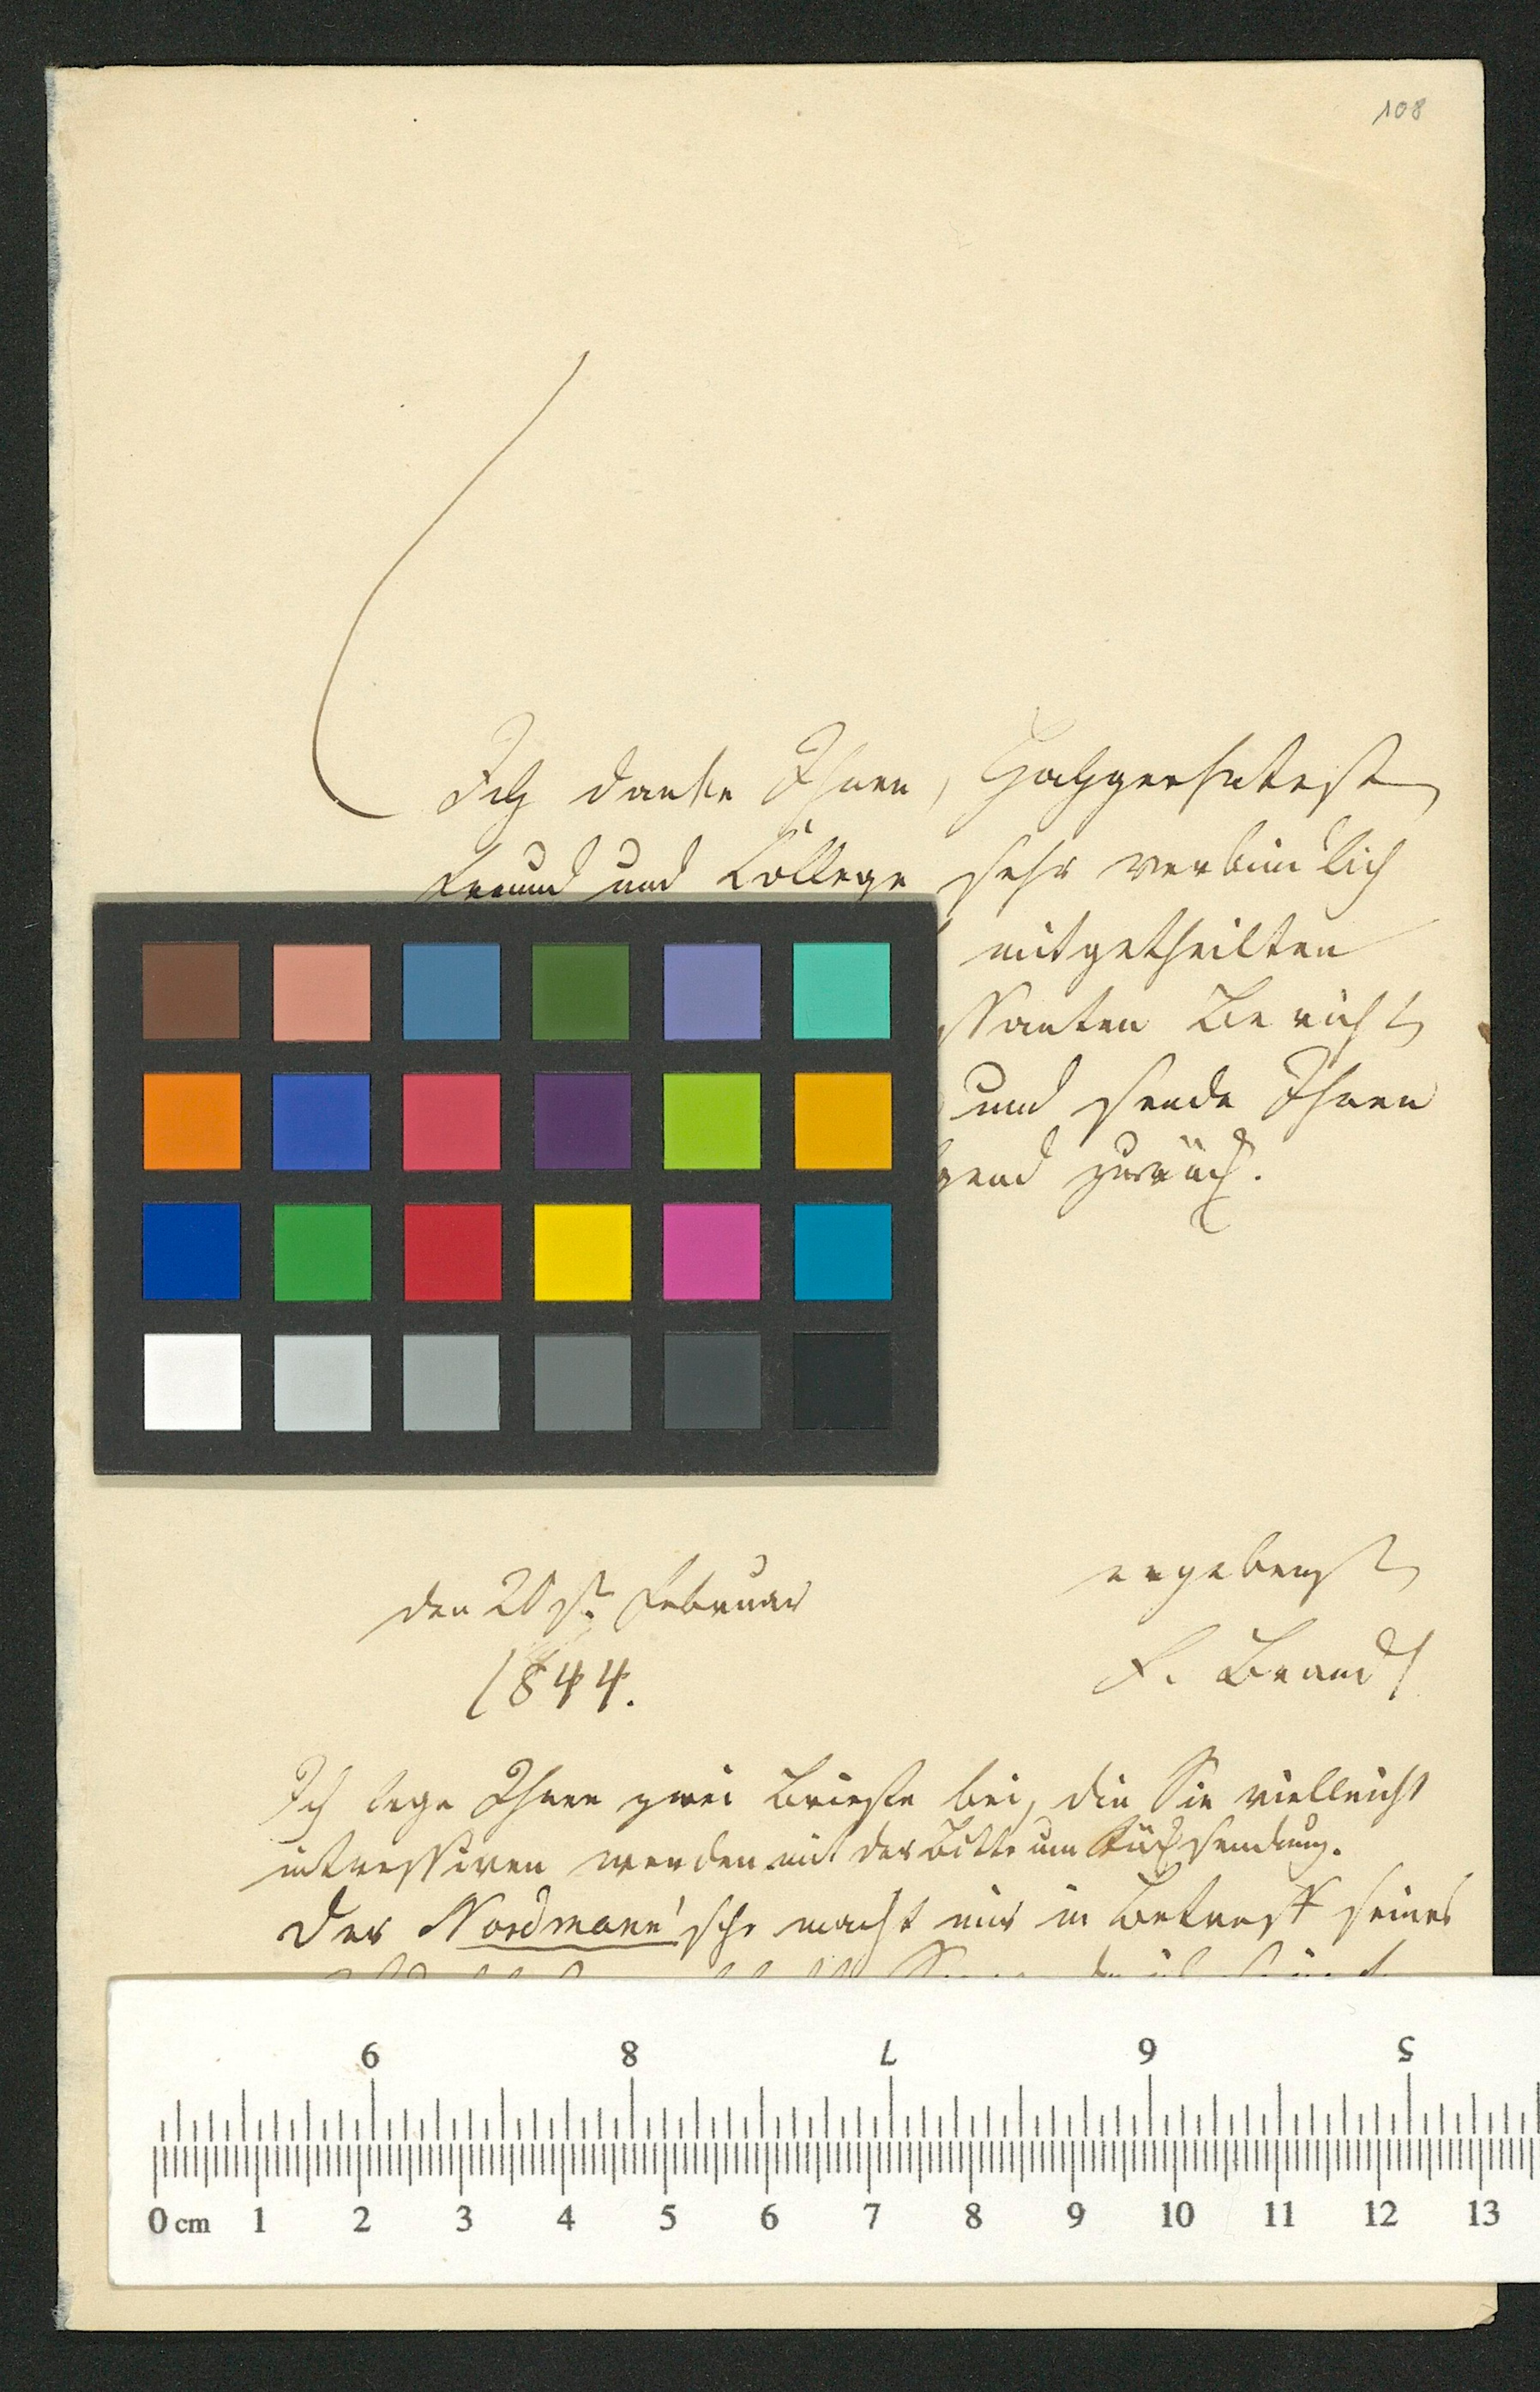 108
Ich danke Ihnen, Hochgeehrtester
Freund und College sehr verbindlich
mitgetheilten
ssanten Bericht
und sende Ihnen
gend zurück.
den 20st. Februar
1844.
ergebenst
F. Brandt
Ich lege Ihnen zwei Briefe bei, die Sie vielleicht
intressiren werden mit der Bitte um Rücksendung.
Der Nordmann'sche macht mir in Betreff seines
9 8 7 6 5
0 cm 1 2 3 4 5 6 7 8 9 10 11 12 13